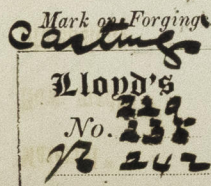 Mark on Forgings
Castings
Lloyd's
229
No. 235
242